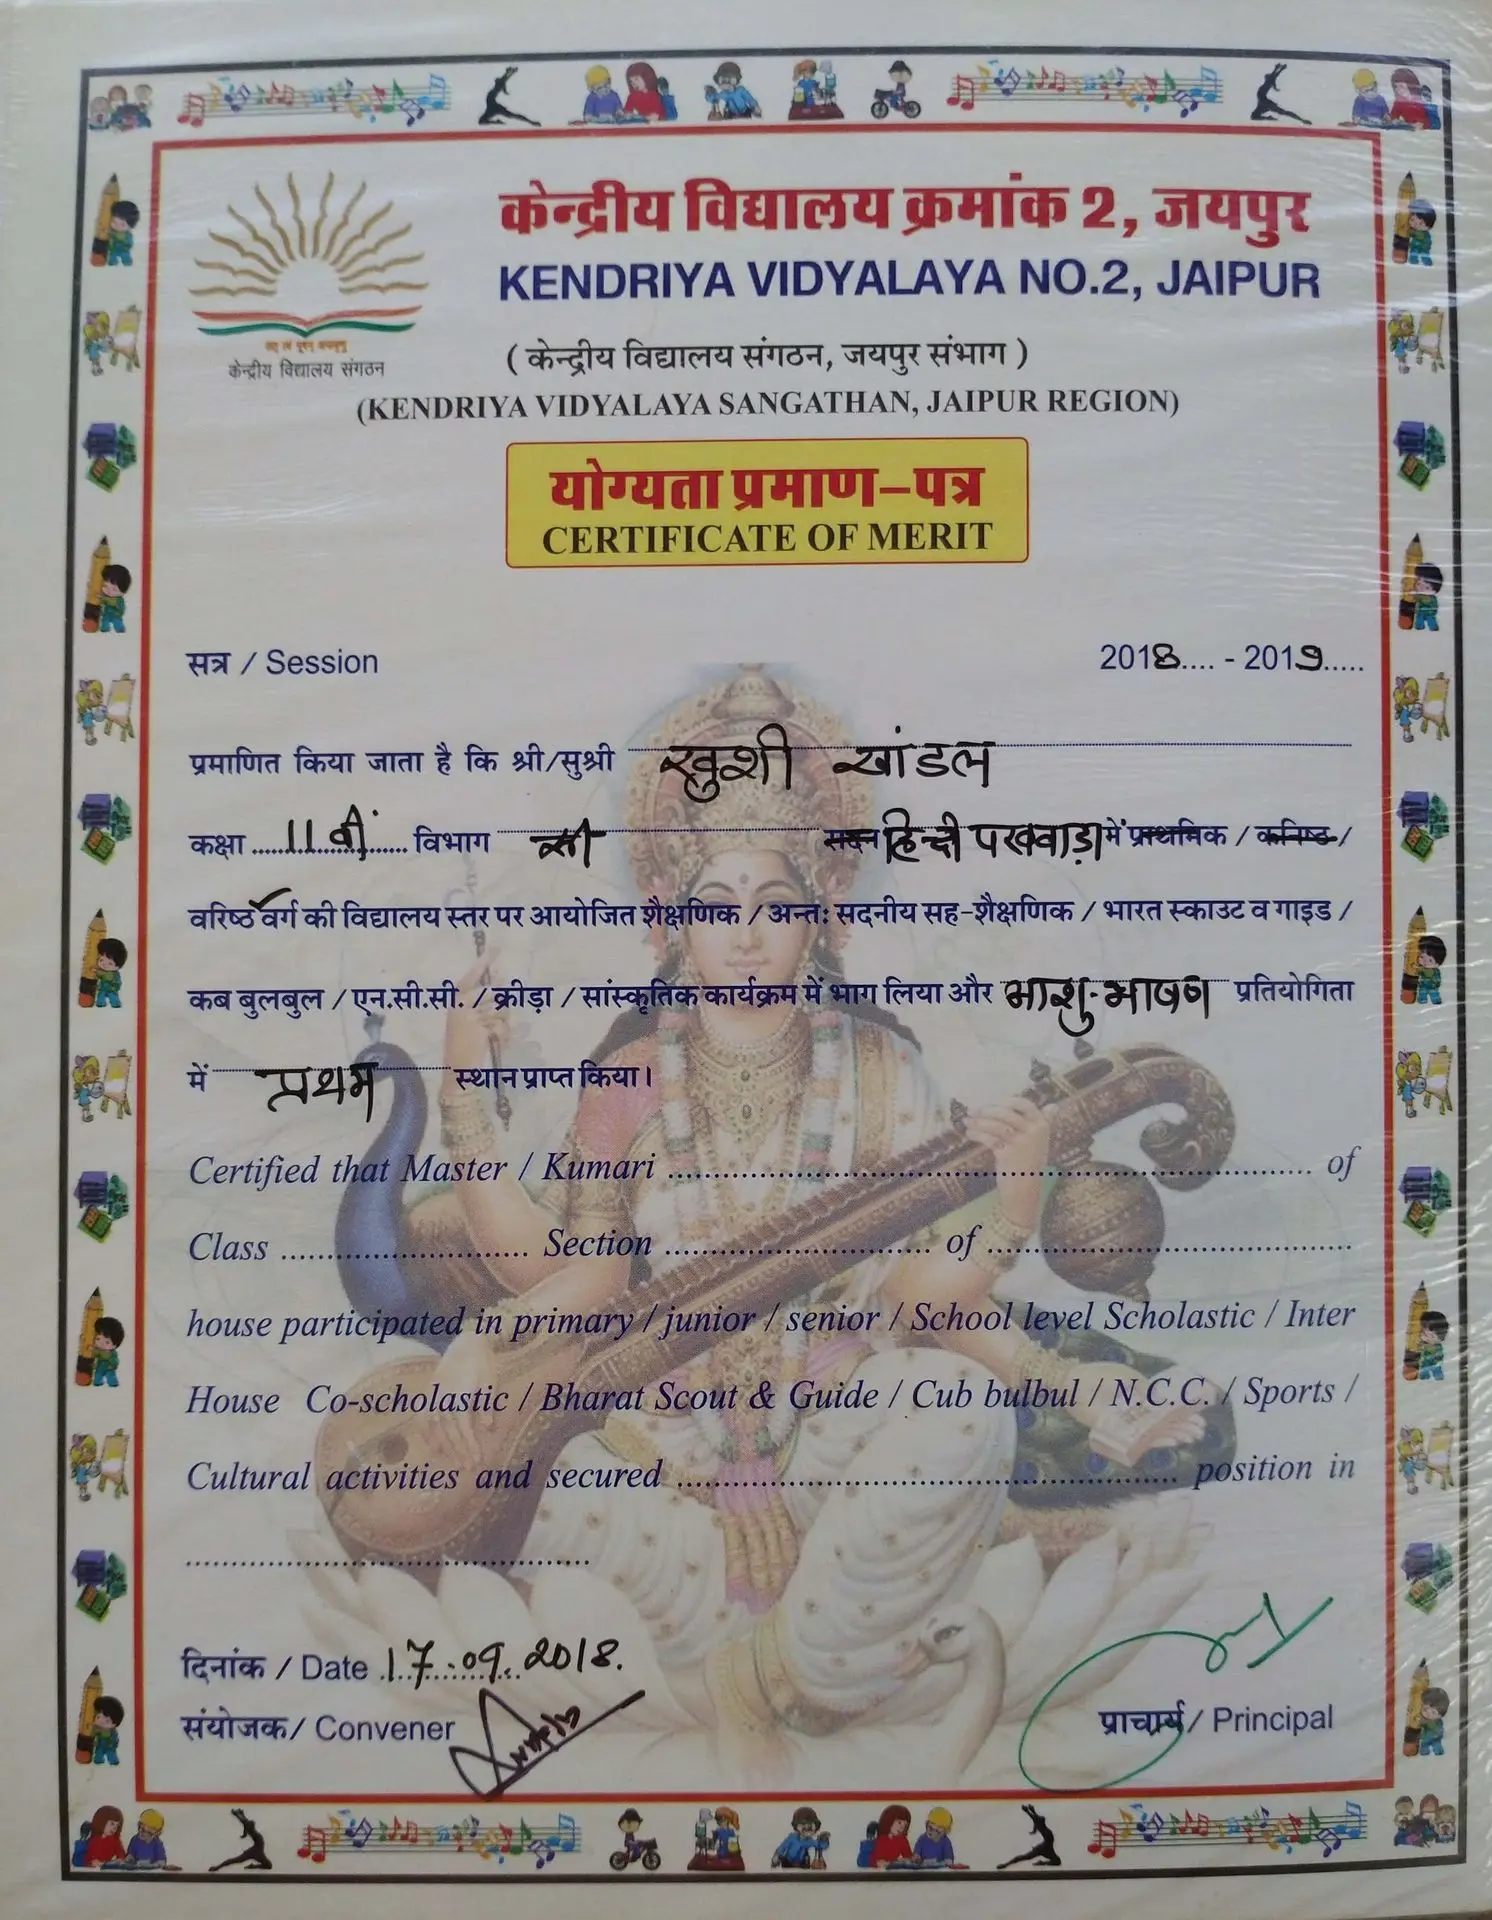 केन्द्रीय विद्यालय क्रमांक 2, जयपुर
KENDRIYA VIDYALAYA NO.2, JAIPUR
केन्द्रीय विद्यालय संगठन
( केन्द्रीय विद्यालय संगठन, जयपुर संभाग )
(KENDRIYA VIDYALAYA SANGATHAN, JAIPUR REGION)
योग्यता प्रमाण-पत्र
CERTIFICATE OF MERIT
सत्र / Session 2018.... - 2019.....
प्रमाणित किया जाता है कि श्री/सुश्री खुशी खांडल
कक्षा 11वीं विभाग सी सदन हिन्दी पखवाड़ा में प्राथमिक / कनिष्ठ /
वरिष्ठ वर्ग की विद्यालय स्तर पर आयोजित शैक्षणिक / अन्तः सदनीय सह-शैक्षणिक / भारत स्काउट व गाइड /
कब बुलबुल / एन.सी.सी. / क्रीड़ा / सांस्कृतिक कार्यक्रम में भाग लिया और आशु-भाषण प्रतियोगिता
में प्रथम स्थान प्राप्त किया।
Certified that Master / Kumari .......... of
Class .......... Section .......... of ..........
house participated in primary / junior / senior / School level Scholastic / Inter
House Co-scholastic / Bharat Scout & Guide / Cub bulbul / N.C.C. / Sports /
Cultural activities and secured .......... position in
..........
दिनांक / Date 17.09.2018.
संयोजक/ Convener प्राचार्य/ Principal